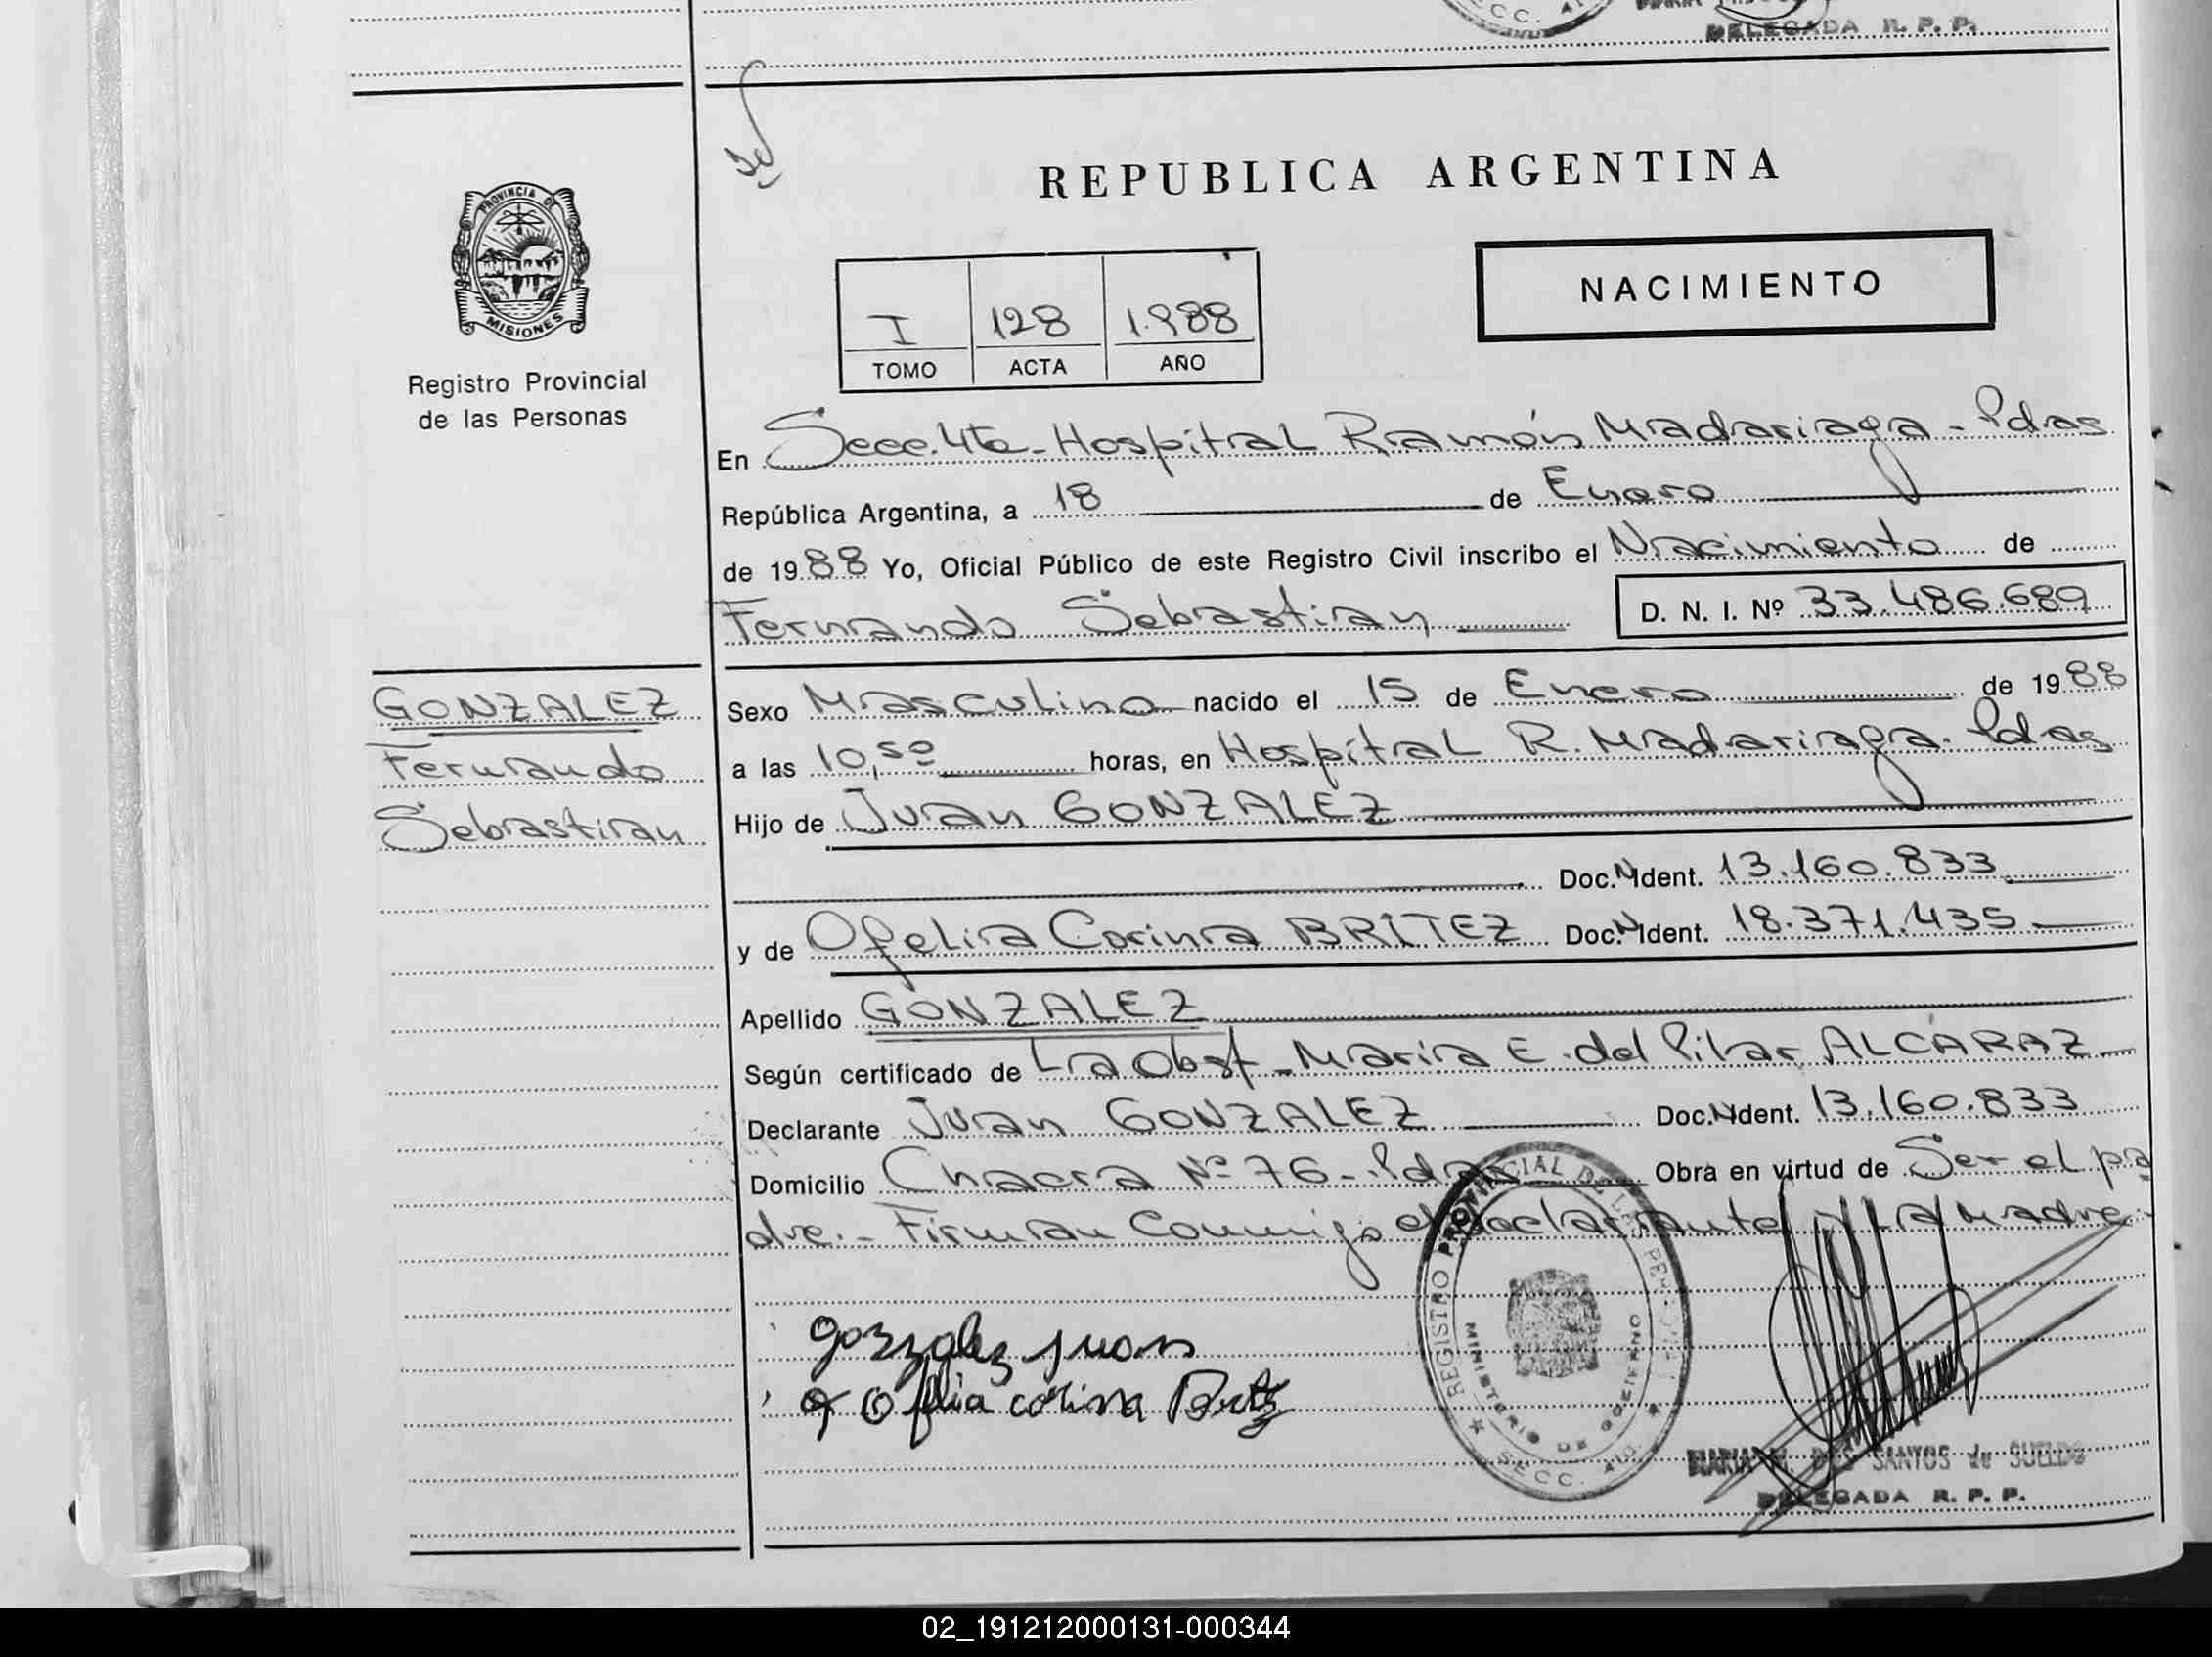 SECC. 4
DELEGADA R. P. P.
REPUBLICA ARGENTINA
PROVINCIA DE
MISIONES
Registro Provincial
de las Personas
I 128 1.988
TOMO ACTA AÑO
NACIMIENTO
En Secc. 4ta - Hospital Ramón Madariaga - Pdas
República Argentina, a 18 de Enero
de 1988 Yo, Oficial Público de este Registro Civil inscribo el Nacimiento de
Fernando Sebastian D. N. I. Nº 33.486.689
GONZALEZ
Fernando
Sebastian
Sexo Masculino nacido el 15 de Enero de 1988
a las 10,50 horas, en Hospital R. Madariaga. Pdas
Hijo de Juan GONZALEZ
Doc. N Ident. 13.160.833
y de Ofelia Corina BRITEZ Doc. N Ident. 18.371.435
Apellido GONZALEZ
Según certificado de La Obst - Maria E. del Pilar ALCARAZ
Declarante Juan GONZALEZ Doc. N Ident. 13.160.833
Domicilio Chacra Nº 76 - Pdas Obra en virtud de Ser el pa
dre.- Firman Conmigo el declarante y La Madre.
gonzalez juan
Ofelia corina Britez
REGISTRO PROVINCIAL DE LAS PERSONAS
MINISTERIO DE GOBIERNO
SECC. 4
MARIA DOS SANTOS de SUELDO
DELEGADA R. P. P.
02_191212000131-000344